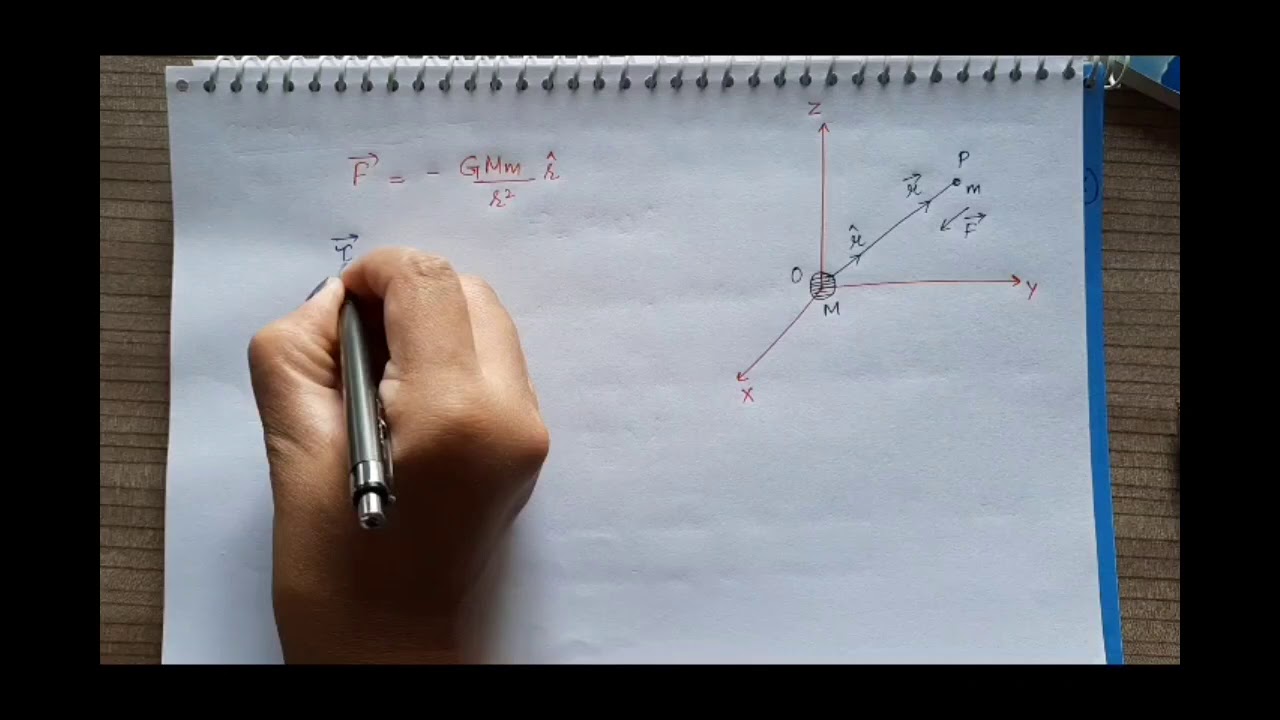 F⃗ = - GMm/r² r̂
τ⃗
Z
P
r⃗
m
F⃗
r̂
O
Y
M
X